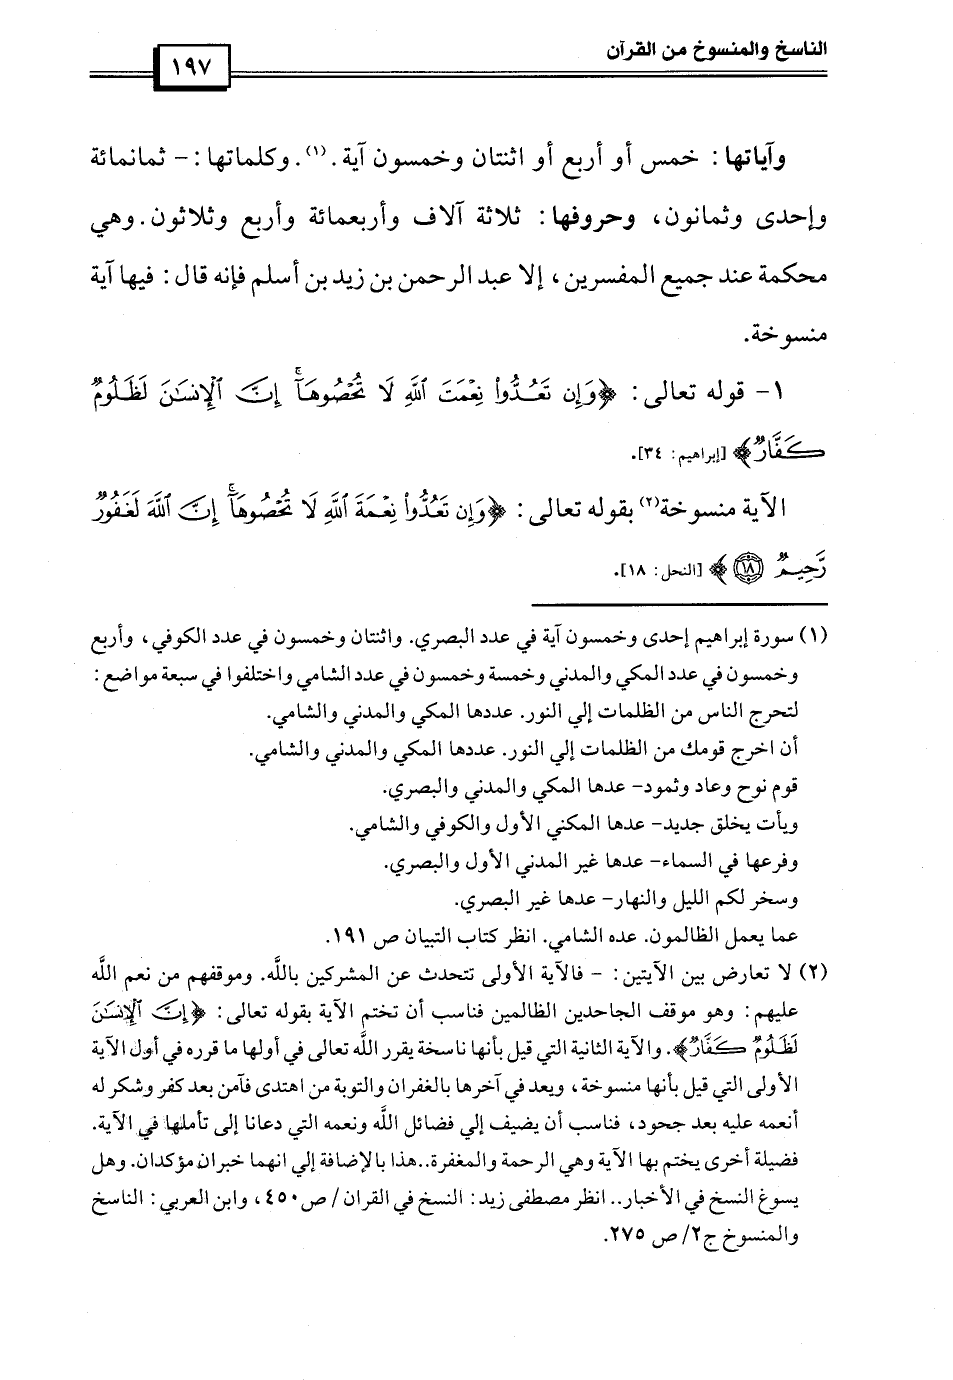 الناسخ والمنسوخ من القرآن
١٩٧
وآياتها : خمس أو أربع أو اثنتان وخمسون آية . (١) . وكلماتها : - ثمانمائة
وإحدى وثمانون، وحروفها : ثلاثة آلاف وأربعمائة وأربع وثلاثون . وهي
محكمة عند جميع المفسرين ، إلا عبد الرحمن بن زيد بن أسلم فإنه قال : فيها آية
منسوخة.
١- قوله تعالى : ﴿وَإِن تَعُدُّوا۟ نِعْمَتَ ٱللَّهِ لَا تُحْصُوهَآ ۗ إِنَّ ٱلْإِنسَـٰنَ لَظَلُومٌ
كَفَّارٌ﴾ [إبراهيم: ٣٤].
الآية منسوخة(٢) بقوله تعالى : ﴿وَإِن تَعُدُّوا۟ نِعْمَةَ ٱللَّهِ لَا تُحْصُوهَآ ۗ إِنَّ ٱللَّهَ لَغَفُورٌ
رَّحِيمٌ ١٨﴾ [النحل: ١٨].
(١) سورة إبراهيم إحدى وخمسون آية في عدد البصري. واثنتان وخمسون في عدد الكوفي، وأربع
وخمسون في عدد المكي والمدني وخمسة وخمسون في عدد الشامي واختلفوا في سبعة مواضع :
لتحرج الناس من الظلمات إلي النور. عددها المكي والمدني والشامي.
أن اخرج قومك من الظلمات إلي النور. عددها المكي والمدني والشامي.
قوم نوح وعاد وثمود- عدها المكي والمدني والبصري.
ويأت يخلق جديد- عدها المكني الأول والكوفي والشامي.
وفرعها في السماء- عدها غير المدني الأول والبصري.
وسخر لكم الليل والنهار- عدها غير البصري.
عما يعمل الظالمون. عده الشامي. انظر كتاب التبيان ص ١٩١.
(٢) لا تعارض بين الآيتين: - فالآية الأولى تتحدث عن المشركين باللَّه. وموقفهم من نعم اللَّه
عليهم: وهو موقف الجاحدين الظالمين فناسب أن تختم الآية بقوله تعالى: ﴿إِنَّ ٱلْإِنسَـٰنَ
لَظَلُومٌ كَفَّارٌ﴾. والآية الثانية التي قيل بأنها ناسخة يقرر اللَّه تعالى في أولها ما قرره في أول الآية
الأولى التي قيل بأنها منسوخة، ويعد في آخرها بالغفران والتوبة من اهتدى فآمن بعد كفر وشكر له
أنعمه عليه بعد جحود، فناسب أن يضيف إلي فضائل اللَّه ونعمه التي دعانا إلى تأملها في الآية.
فضيلة أخرى يختم بها الآية وهي الرحمة والمغفرة..هذا بالإضافة إلي انهما خبران مؤكدان. وهل
يسوغ النسخ في الأخبار.. انظر مصطفى زيد: النسخ في القران/ ص٤٥٠، وابن العربي: الناسخ
والمنسوخ ج٢/ ص ٢٧٥.